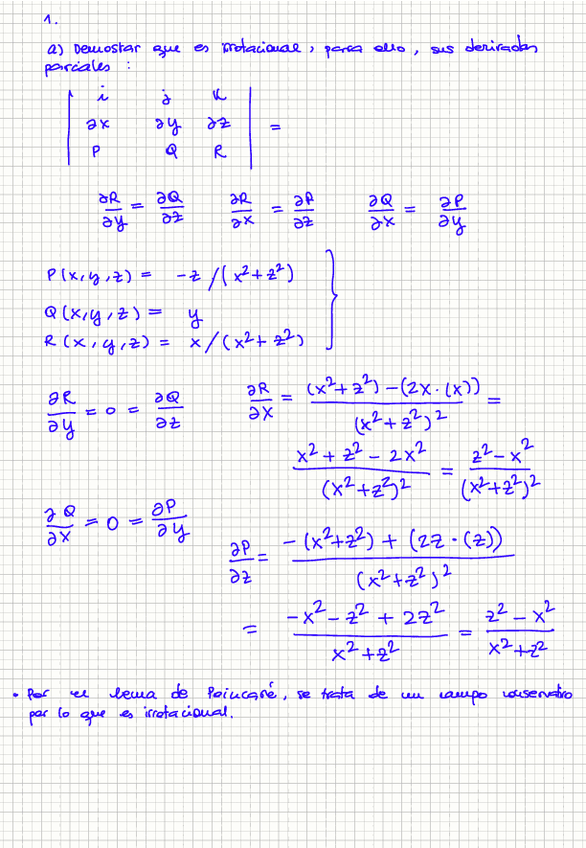 1.
a) Demostar que es irrotacional, para ello, sus derivadas
parciales :
| i j k |
| ∂x ∂y ∂z | =
| P Q R |
∂R/∂y = ∂Q/∂z ∂R/∂x = ∂P/∂z ∂Q/∂x = ∂P/∂y
P(x,y,z) = -z/(x²+z²)
Q(x,y,z) = y
R(x,y,z) = x/(x²+z²)
∂R/∂y = 0 = ∂Q/∂z ∂R/∂x = ((x²+z²)-(2x·(x)))/(x²+z²)² =
(x²+z²-2x²)/(x²+z²)² = (z²-x²)/(x²+z²)²
∂Q/∂x = 0 = ∂P/∂y
∂P/∂z = (-(x²+z²)+(2z·(z)))/(x²+z²)²
= (-x²-z²+2z²)/(x²+z²) = (z²-x²)/(x²+z²)
• Por el lema de Poincaré, se trata de un campo
por lo que es irrotacional.